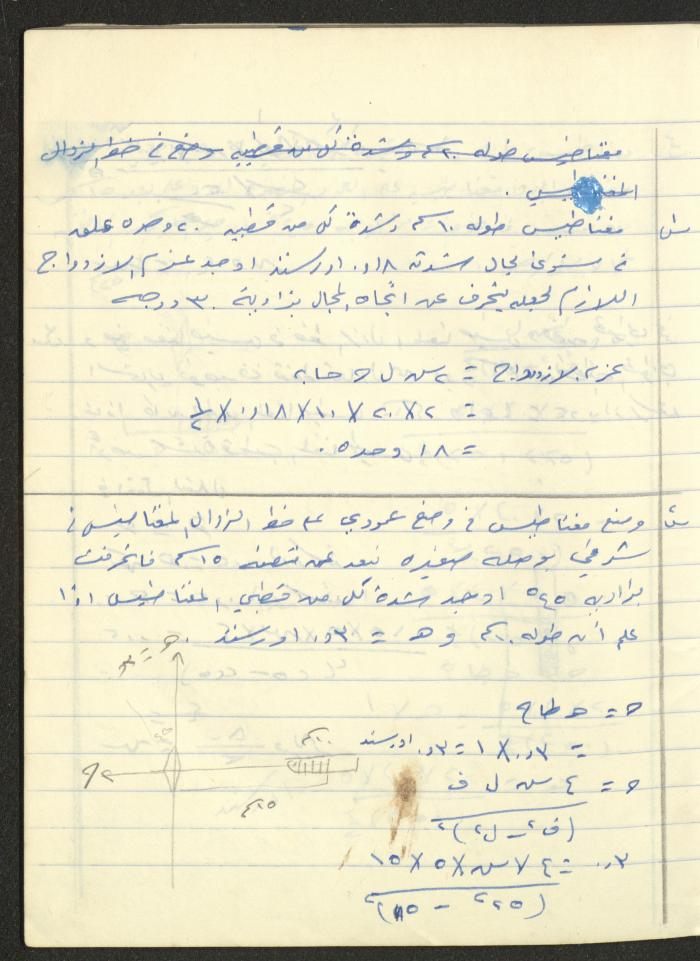 مغناطيس طوله ١٠سم وشدة كل من قطبيه وضع في خط الزوال
المغناطيسي .
س مغناطيس طوله ١٠سم وشدة كل من قطبيه ٢٠ وحده علق
في مستوى لمجال شدته ٠٫١٨ اورستد اوجد عزم الازدواج
اللازم لجعله ينحرف عن اتجاه المجال بزاوية ٣٠ درجه
عزم الازدواج = ٢ س ل ح حا هـ
= ٢ × ٢٠ × ١٠ × ٠٫١٨ × ١/٢
= ١٨ وحده .
س وضع مغناطيس في وضع عمودي على خط الزوال المغناطيسي في
شرقي بوصله صغيره تبعد عن منتصفه ١٥سم فانحرفت
بزاويه ٤٥° اوجد شدة كل من قطبي المغناطيس اذا
علم أن طوله ١٠سم و هـ = ٠٫٣ اورستد .
ح = هـ ظا ح
= ٠٫٣ × ١ = ٠٫٣ اورستد
ح = ٤ س ل ف
(ف٢ – ل٢)٢
٠٫٣ = ٤ × س × ٥ × ١٥
١٠سم
١٥سم